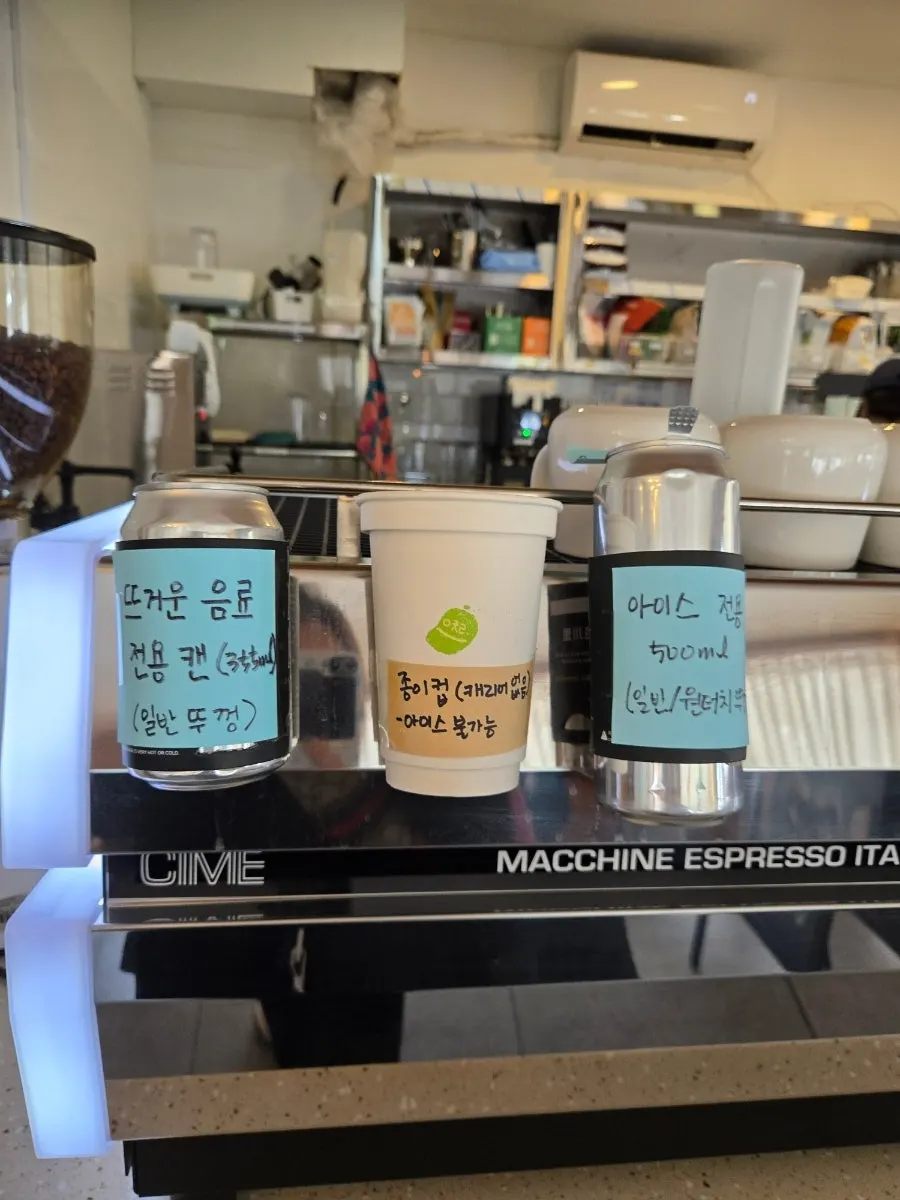 뜨거운 음료
전용 캔 (355ml)
(일반 뚜껑)
종이컵 (캐리어 없음)
-아이스 불가능
아이스 전용
500ml
(일반/원터치뚜
CIME
MACCHINE ESPRESSO ITA